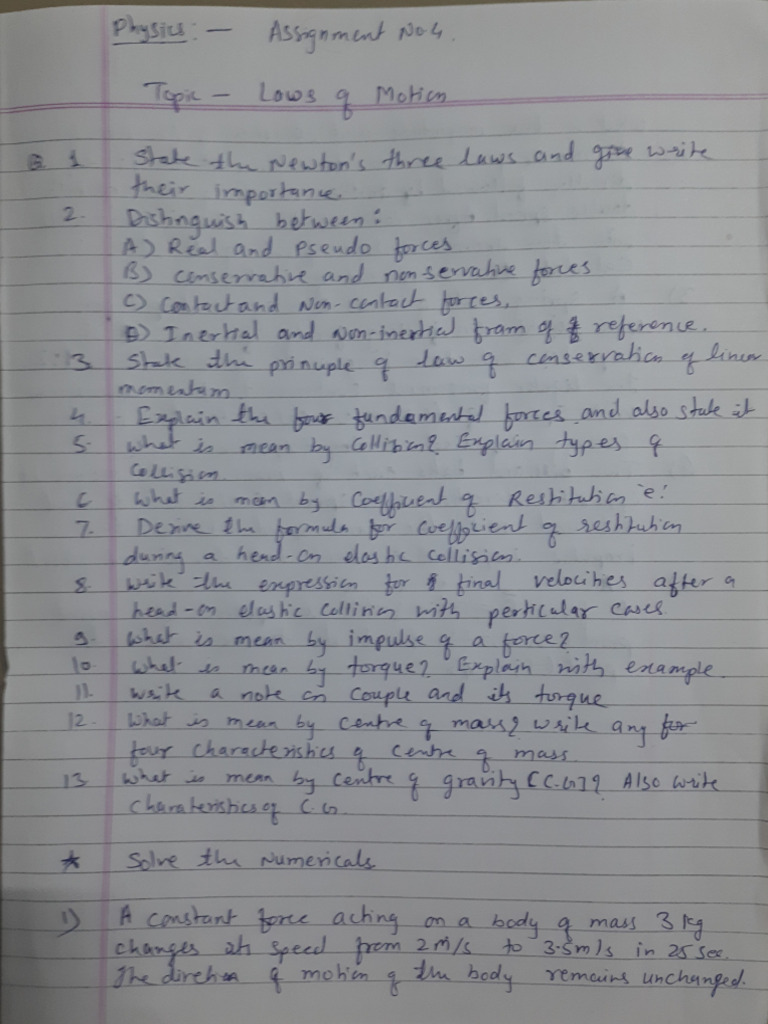 Physics :- Assignment No 4.
Topic - Laws of Motion
Q 1 State the Newton's three laws and give write
their importance.
2. Distinguish between :
A) Real and Pseudo forces
B) conservative and nonservative forces
C) Contact and Non-contact forces.
D) Inertial and Non-inertial fram of f reference.
3 State the prinuple of law of conservation of linear
momentum
4. Explain the four fundamental forces and also state it
5. What is mean by Collision? Explain types of
Collision.
6 What is mean by Coefficient of Restitution 'e'.
7. Derive the formula for coefficient of restitution
during a head-on elastic collision.
8. Write the expression for f final velocities after a
head-on elastic collision with perticular cases
9. What is mean by impulse of a force?
10 What is mean by torque? Explain with example.
11. Write a note on couple and its torque
12. What is mean by centre of mass? write any for
four characteristics of centre of mass
13 What is mean by centre of gravity [C.G]? Also write
charateristics of C.G
* Solve the Numericals
1) A constant force acting on a body of mass 3 kg
changes its speed from 2 m/s to 3.5 m/s in 25 sec.
The direction of motion of the body remains unchanged.